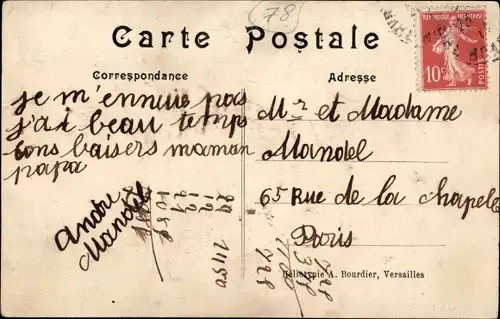 (78)
Carte Postale
Correspondance
Adresse
10c
POSTES
je m'ennuie pas
j'ai beau temps
bons baisers maman
papa
André
Mandel
Mr et Madame
Mandel
65 Rue de la Chapelle
Paris
Héliotypie A. Bourdier, Versailles